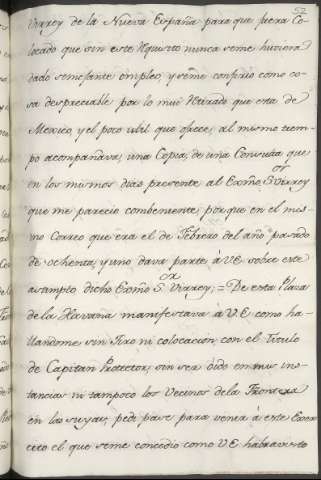 52
Virrey de la Nueva España para que fuera Co-
locado que sin este requisito nunca seme huviera
dado semejante empleo, y seme confirio como co-
sa despreciable por lo mui retirado que esta de
Mexico, y el poco util que ofrece, al mismo tiem-
po acompañava, una Copia, de una Consulta que
en los mismos dias presente al Exmo Sor Virrey
que me parecio combeniente, porque en el mis-
mo Correo que era el de Febrero del año pasado
de ochenta, y uno dava parte á VE sobre este
asumpto dicho Exmo Sor Virrey, = De esta Plaza
de la Havana manifestava á VE como ha-
llandome sin Fixo ni colocacion, con el Titulo
de Capitan Protector, sin ser oido en mis ins-
tancias ni tampoco los Vecinos de la Frontera
en las suyas, pedi pase para venir á este Exer-
cito el que seme concedio como VE habra visto